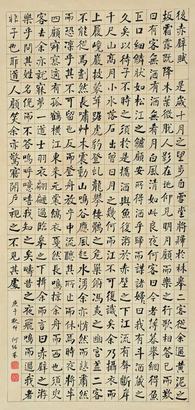 後赤壁賦 是歲十月之望步自雪堂將歸於臨皋二客從余過黃泥之
坂霜露既降木葉盡脫人影在地仰見明月顧而樂之行歌相答已而歎
曰有客無酒有酒無肴月白風清如此良夜何客曰今者薄暮舉網得魚
巨口細鱗狀如松江之鱸顧安所得酒乎歸而謀諸婦婦曰我有斗酒藏之
久矣以待子不時之須於是攜酒與魚復游於赤壁之下江流有聲斷岸
千尺山高月小水落石出曾日月之幾何而江山不可復識矣余乃攝衣而
上履巉巖披蒙茸踞虎豹登虬龍攀棲鶻之危巢俯馮夷之幽宮蓋二客
不能從焉劃然長嘯草木震動山鳴谷應風起水湧余亦悄然而悲肅然而
恐凜乎其不可留也反而登舟放乎中流聽其所止而休焉時夜將半四顧
寂寥適有孤鶴橫江東來翅如車輪玄裳縞衣戛然長鳴掠余舟而西也須臾
客去余亦就睡夢一道士羽衣翩躚過臨皋之下揖余而言曰赤壁之遊
樂乎問其姓名俛而不答嗚呼噫嘻我知之矣疇昔之夜飛鳴而過我者
非子也耶道士顧笑余亦驚寤開戶視之不見其處